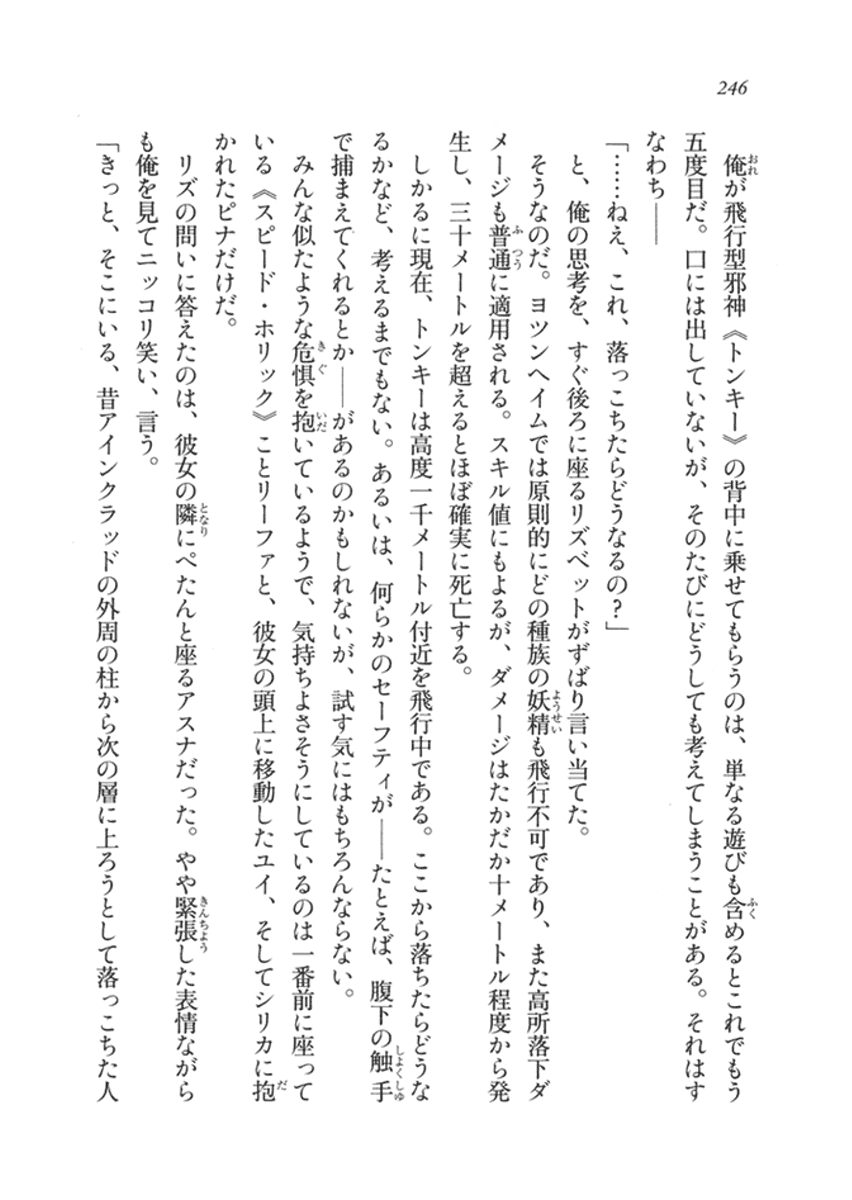 246
俺が飛行型邪神《トンキー》の背中に乗せてもらうのは、単なる遊びも含めるとこれでもう
五度目だ。口には出していないが、そのたびにどうしても考えてしまうことがある。それはす
なわち――
「……ねえ、これ、落っこちたらどうなるの？」
と、俺の思考を、すぐ後ろに座るリズベットがずばり言い当てた。
そうなのだ。ヨツンヘイムでは原則的にどの種族の妖精も飛行不可であり、また高所落下ダ
メージも普通に適用される。スキル値にもよるが、ダメージはたかだか十メートル程度から発
生し、三十メートルを超えるとほぼ確実に死亡する。
しかるに現在、トンキーは高度一千メートル付近を飛行中である。ここから落ちたらどうな
るかなど、考えるまでもない。あるいは、何らかのセーフティが――たとえば、腹下の触手
で捕まえてくれるとか――があるのかもしれないが、試す気にはもちろんならない。
みんな似たような危惧を抱いているようで、気持ちよさそうにしているのは一番前に座って
いる《スピード・ホリック》ことリーファと、彼女の頭上に移動したユイ、そしてシリカに抱
かれたピナだけだ。
リズの問いに答えたのは、彼女の隣にぺたんと座るアスナだった。やや緊張した表情ながら
も俺を見てニッコリ笑い、言う。
「きっと、そこにいる、昔アインクラッドの外周の柱から次の層に上ろうとして落っこちた人